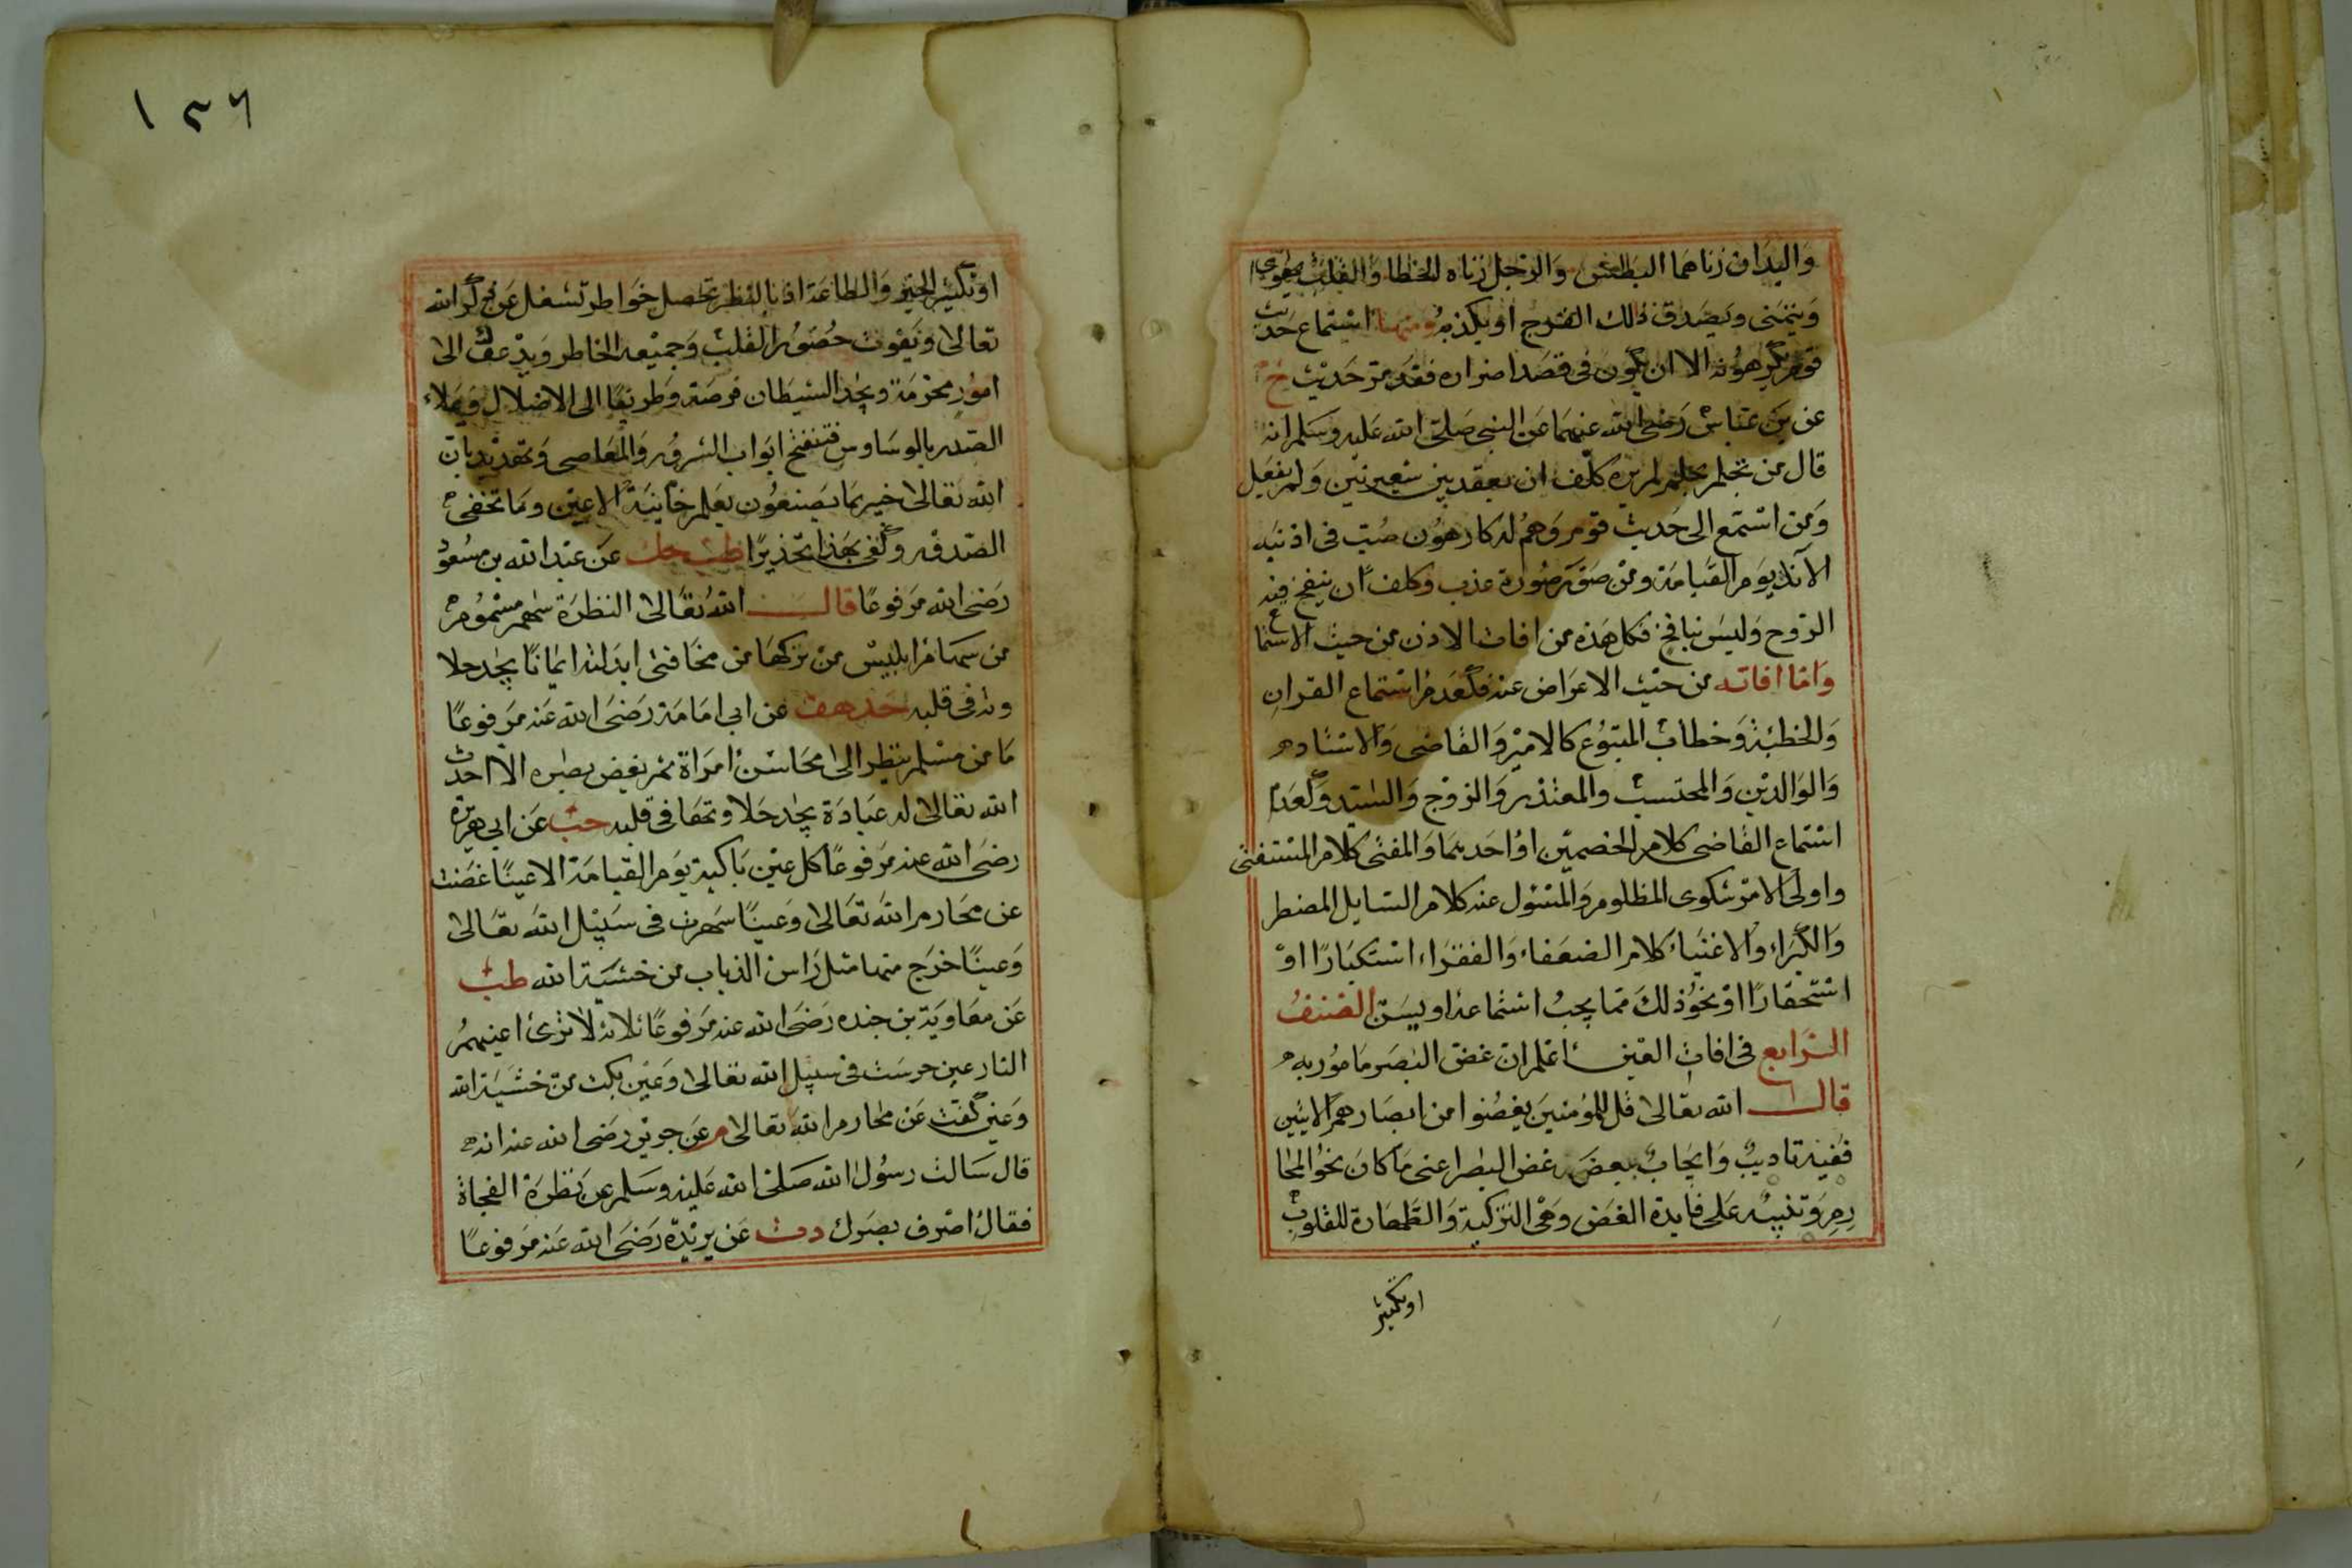 واليدان زناهما البطش والرجل زناه الخطا والقلب يهوي
ويتمنى ويصدق ذلك الفرج او يكذبه ومنها استماع حديث
قوم يكرهونه الا ان يكون في قصد اضراره فقد مر حديث خ
عن بن عباس رضى الله عنهما عن النبى صلى الله عليه وسلم انه
قال من تحلم بحلم لم يره كلف ان يعقد بين شعيرتين ولم يفعل
ومن استمع الى حديث قوم وهم له كارهون صب فى اذنيه
الآنك يوم القيامة ومن صور صورة عذب وكلف ان ينفخ فيه
الروح وليس بنافخ فكل هذه من افات الاذن من حيث الاستماع
واما افاته من حيث الاعراض عنه فكعدم استماع القران
والخطبة وخطاب المتبوع كالامير والقاضى والاستاد
والوالدين والمحتسب والمعتذر والزوج والسيد وكعدم
استماع القاضى كلام الخصمين او احدهما والمفتى كلام المستفتى
واولى الامر شكوى المظلوم والمسئول عنه كلام السايل المضطر
والكبراء والاغنياء كلام الضعفاء والفقراء استكبارا او
استحقارا او نحو ذلك مما يجب استماعه او يسن الصنف
الرابع فى افات العين اعلم ان غض البصر مامور به
قال الله تعالى قل للمؤمنين يغضوا من ابصارهم الايتين
ففيه تاديب وايجاب بعض غض البصر اعنى ما كان نحو المحا
رم وتنبيه على فايدة الغض وهى التزكية والطهارة للقلوب
او تكثير
١٣٦
او تكثير الخير والطاعة اذ بالنظر تحصل خواطر تشغل عن ذكر الله
تعالى وتفوت حضور القلب وجميعه الخاطر ويدعوك الى
امور محرمة ويجد الشيطان فرصة وطريقا الى الاضلال ويملاء
الصدر بالوساوس فتنفتح ابواب الشرور والمعاصى وتهديد بان
الله تعالى خبير بما يصنعون يعلم خاينة الاعين وما تخفى
الصدور وكفى بهذا تحذيرا طب حك عن عبد الله بن مسعود
رضى الله مرفوعا قال الله تعالى النظرة سهم مسموم
من سهام ابليس من تركها من مخافتى ابدلته ايمانا يجد حلا
وته فى قلبه حد هق عن ابى امامة رضى الله عنه مرفوعا
ما من مسلم ينظر الى محاسن امراة ثم يغض بصره الا احدث
الله تعالى له عبادة يجد حلاوتها فى قلبه حب عن ابى هريرة
رضى الله عنه مرفوعا كل عين باكية يوم القيامة الا عينا غضت
عن محارم الله تعالى وعينا سهرت فى سبيل الله تعالى
وعينا خرج منها مثل راس الذباب من خشية الله طب
عن معاوية بن جنده رضى الله عنه مرفوعا ثلاثة لا ترى اعينهم
النار عين حرست فى سبيل الله تعالى وعين بكت من خشية الله
وعين كفت عن محارم الله تعالى م عن جرير رضى الله عنه انه
قال سالت رسول الله صلى الله عليه وسلم عن نظرة الفجاة
فقال اصرف بصرك دت عن بريدة رضى الله عنه مرفوعا